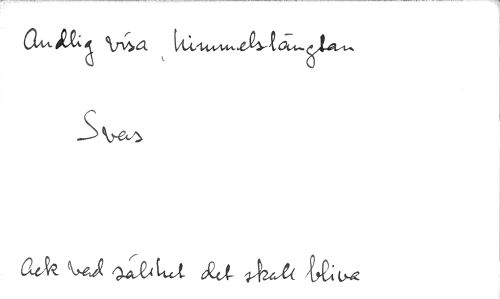 Andlig visa, himmelslängtan
Svas
Ack vad sälhet det skall bliva